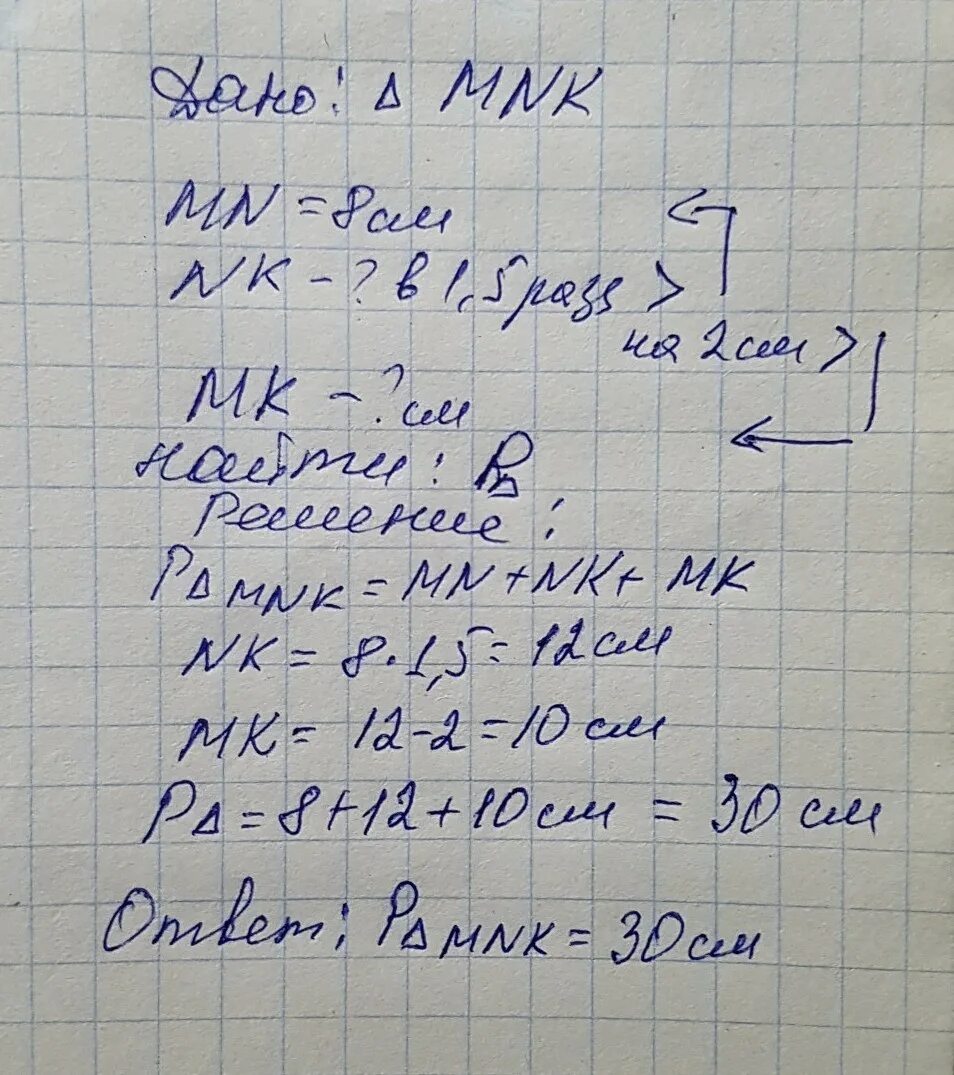 Дано: Δ MNK
MN = 8 см
NK - ? в 1,5 раза >
на 2 см >
MK - ? см
найти: PΔ
Решение:
PΔMNK = MN + NK + MK
NK = 8 · 1,5 = 12 см
MK = 12 - 2 = 10 см
PΔ = 8 + 12 + 10 см = 30 см
Ответ: PΔMNK = 30 см